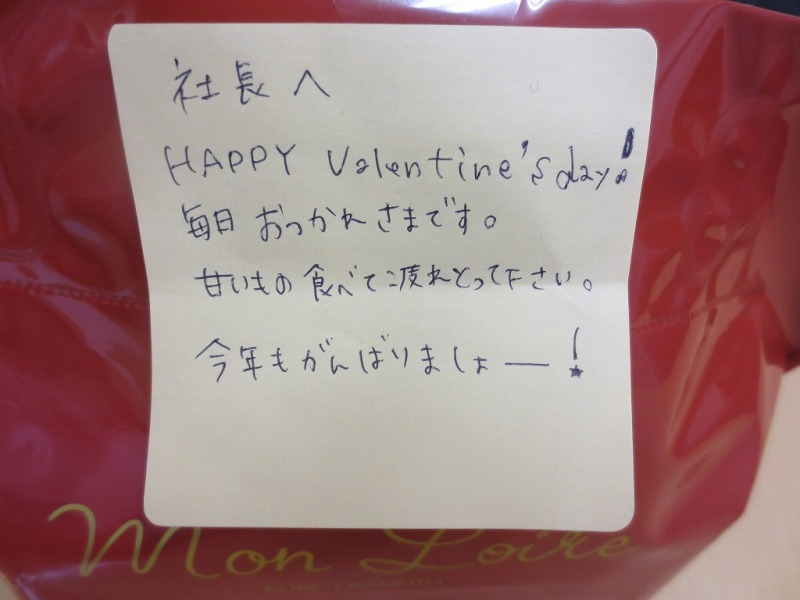 社長へ
HAPPY Valentine's day!
毎日 おつかれさまです。
甘いもの食べて疲れとって下さい。
今年もがんばりましょー!
Mon Loire